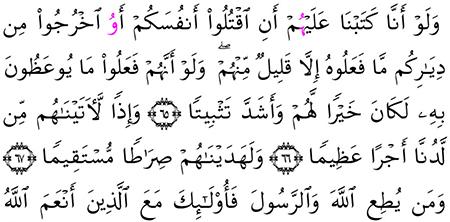 وَلَوْ أَنَّا كَتَبْنَا عَلَيْهُمْ أَنِ ٱقْتُلُوا۟ أَنفُسَكُمْ أَوُ ٱخْرُجُوا۟ مِن
دِيَٰرِكُم مَّا فَعَلُوهُ إِلَّا قَلِيلٌ مِّنْهُمْ ۖ وَلَوْ أَنَّهُمْ فَعَلُوا۟ مَا يُوعَظُونَ
بِهِۦ لَكَانَ خَيْرًا لَّهُمْ وَأَشَدَّ تَثْبِيتًا ﴿٦٥﴾ وَإِذًا لَّأَتَيْنَٰهُم مِّن
لَّدُنَّا أَجْرًا عَظِيمًا ﴿٦٦﴾ وَلَهَدَيْنَٰهُمْ صِرَٰطًا مُّسْتَقِيمًا ﴿٦٧﴾
وَمَن يُطِعِ ٱللَّهَ وَٱلرَّسُولَ فَأُو۟لَٰٓئِكَ مَعَ ٱلَّذِينَ أَنْعَمَ ٱللَّهُ